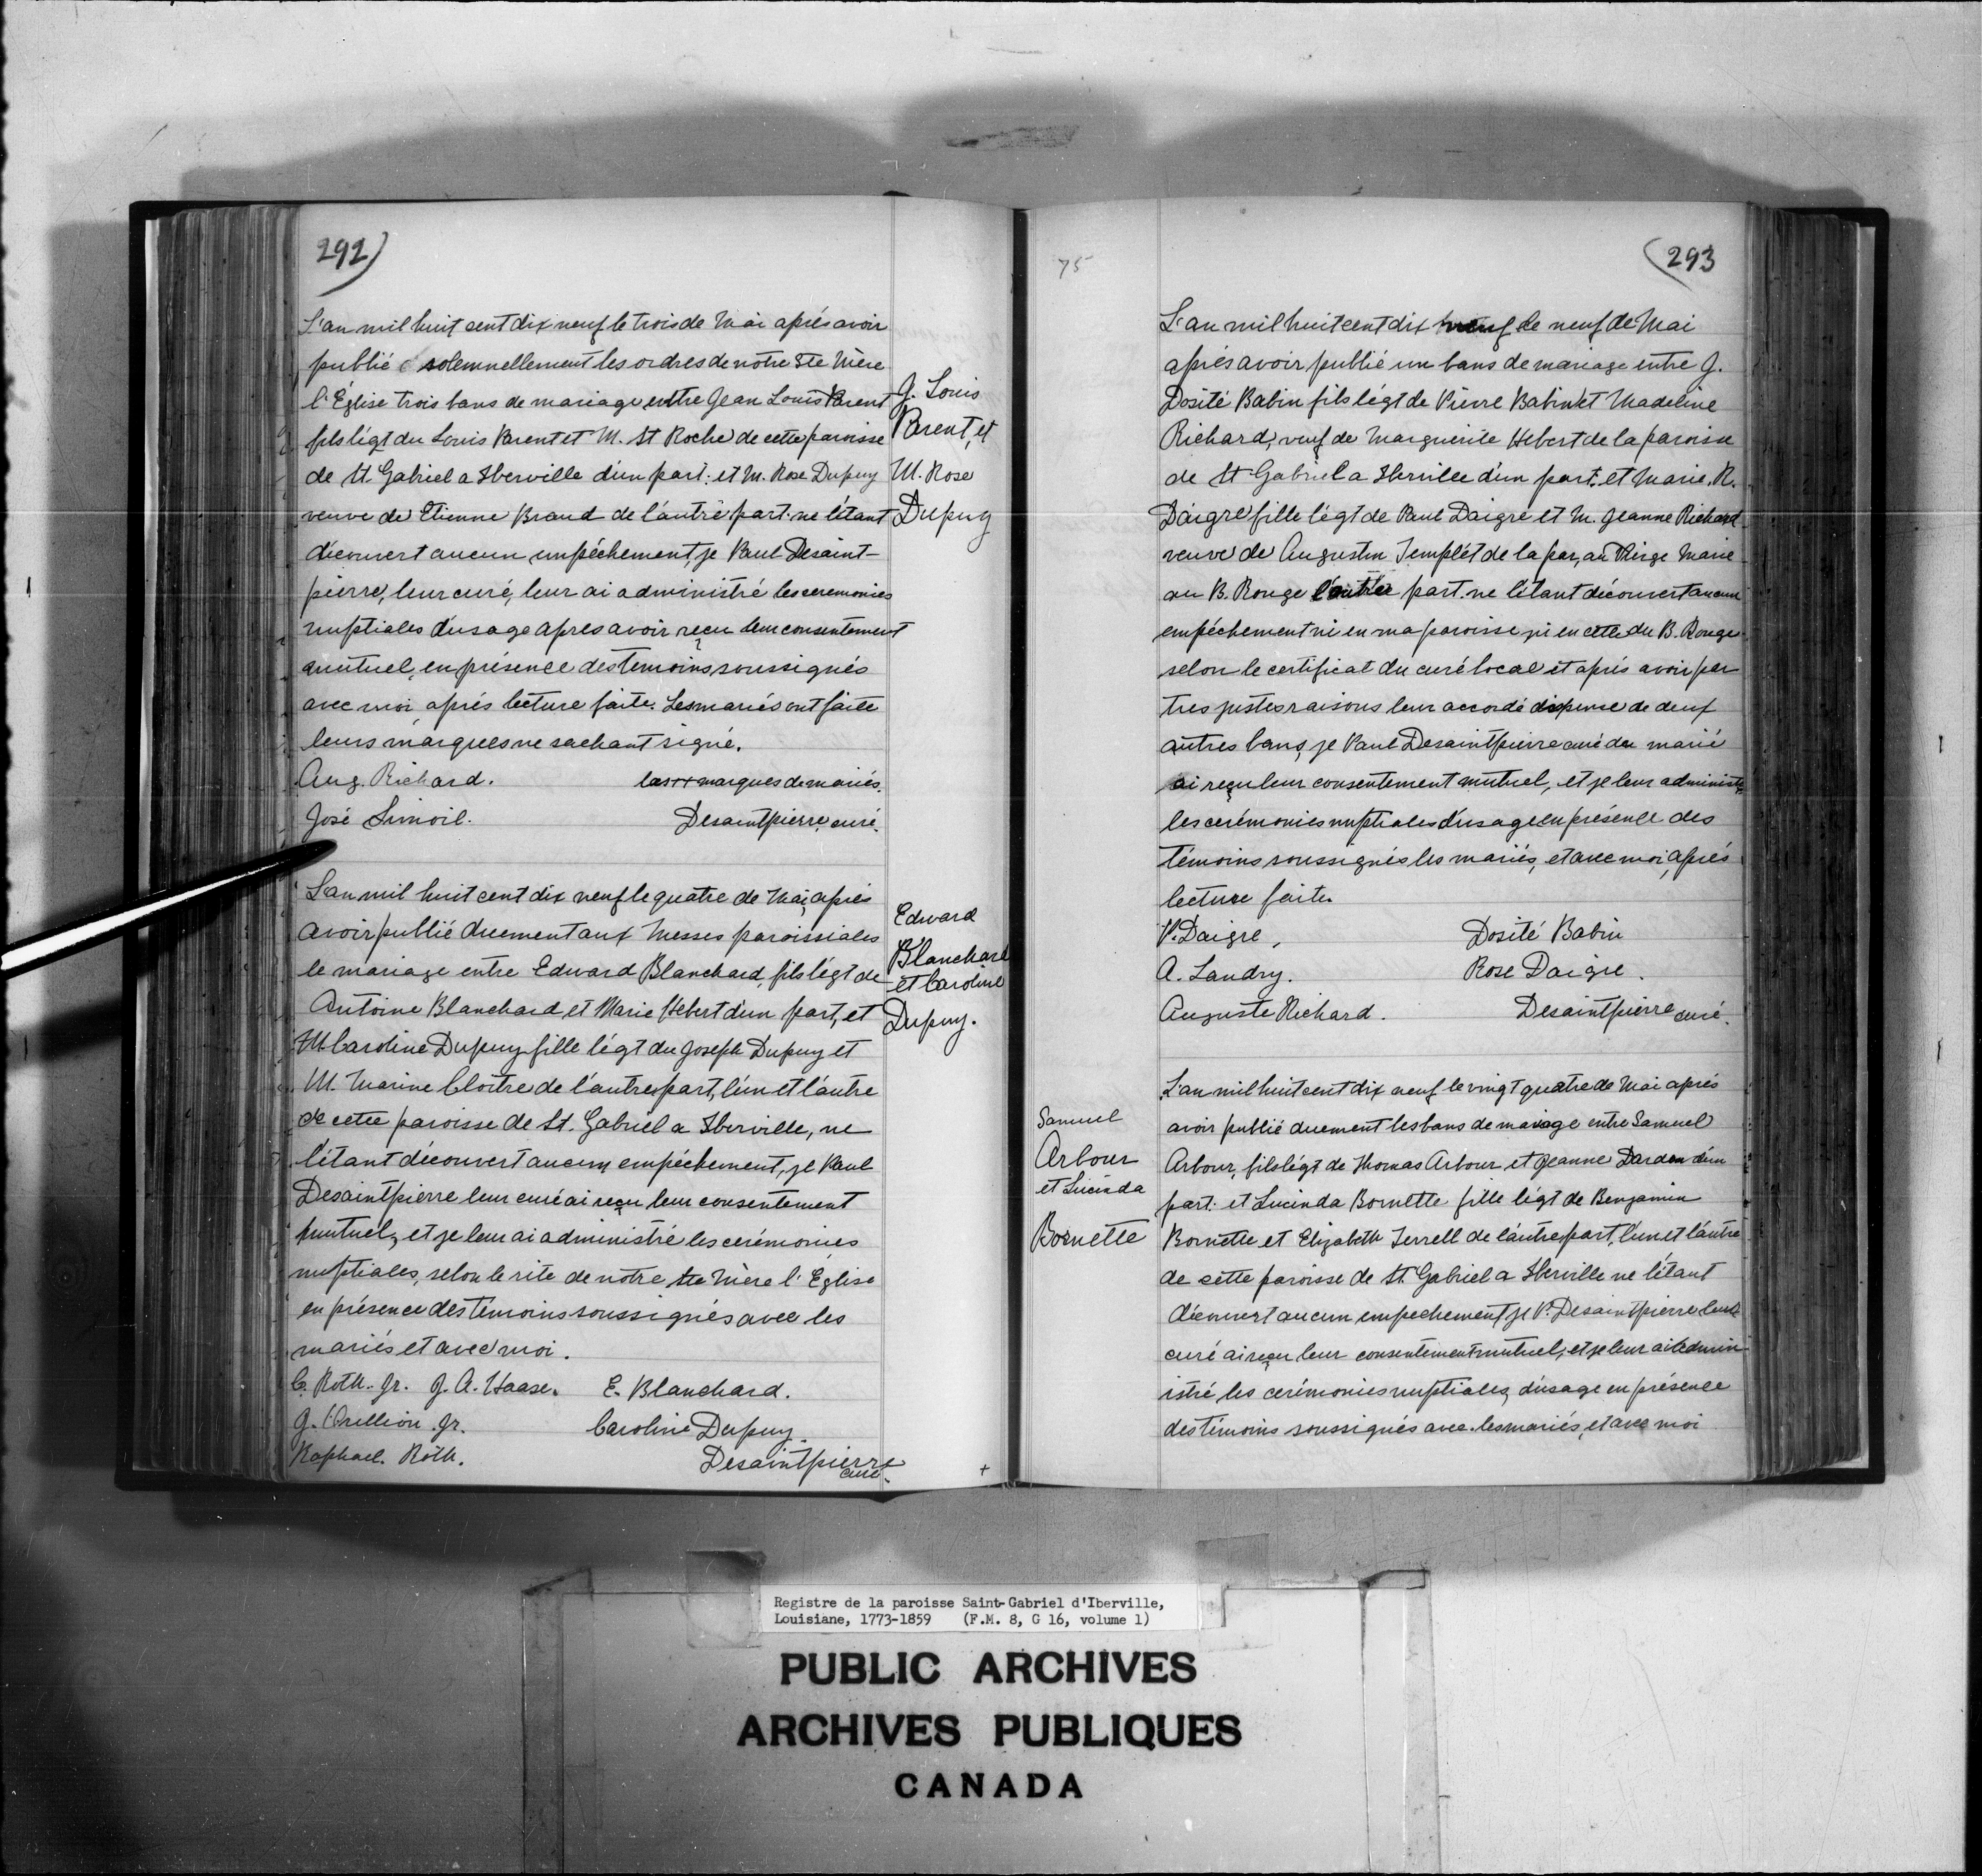 292)
L'an mil huit cent dix neuf le trois de Mai aprés avoir
publié solemnellement les ordres de notre Ste Mère
l'Église trois bans de mariage entre Jean Louis Parent
fils légt du Louis Parent et M. St Roche de cette paroisse
de St. Gabriel a Iberville d'un part: et M. Rose Dupuy
veuve de Etienne Braud de l'autre part. ne l'étant
découvert aucun empéchement, je Paul Desaint-
pierre, leur curé, leur ai administré les ceremonies
nuptiales d'usage apres avoir reçu leur consentement
mutuel, en présence des temoins soussignés
avec moi, aprés lecture faite. Les mariés ont faite
leurs marques ne sachant signé.
Aug. Richard. las++ marques de mariés.
José Simoil. Desaintpierre, curé.
J. Louis
Parent, et
M. Rose
Dupuy
L'an mil huit cent dix neuf le quatre de Mai, aprés
avoir publié duement aux Messes paroissiales
le mariage entre Edward Blanchard, fils légt de
Antoine Blanchard et Marie Hebert d'un part, et
M. Caroline Dupuy fille légt du Joseph Dupuy et
M. Marine Cloitre de l'autre part, l'un et l'autre
de cette paroisse de St. Gabriel a Iberville, ne
l'étant découvert aucun empéchement, je Paul
Desaintpierre leur curé ai reçu leur consentement
mutuel, et je leur ai administré les cerémonies
nuptiales, selon le rite de notre Ste Mère l'Église
en présence des temoins soussignés avec les
mariés et avec moi.
C. Roth. Jr. J. A. Haase. E. Blanchard.
J. Orillion Jr. Caroline Dupuy.
Raphael. Roth. Desaintpierre
curé.
Edward
Blanchard
et Caroline
Dupuy.
+
75
(293
L'an mil huit cent dix neuf le neuf de Mai
aprés avoir publié un bans de mariage entre J.
Dosité Babin fils légt de Pierre Babin et Madeline
Richard, veuf de Marguerite Hebert de la paroisse
de St Gabriel a Iberville d'un part. et Marie. R.
Daigre fille légt de Paul Daigre et M. Jeanne Richard
veuve de Augustin Templét de la par, au Vierge Marie
au B. Rouge l'autre part. ne l'étant découvert aucun
empéchement ni en ma paroisse ni en cette du B. Rouge
selon le certificat du curé local et aprés avoir per
tres justes raisons leur accordé dispense de deux
autres bans, je Paul Desaintpierre curé du marié
ai reçu leur consentement mutuel, et je leur administré
les cerémonies nuptiales d'usage en présence des
témoins soussignés les mariés, et avec moi, aprés
lecture faite.
P. Daigre, Dosité Babin
A. Landry. Rose Daigre.
Auguste Richard. Desaintpierre curé.
Samuel
Arbour
et Lucinda
Bornette
L'an mil huit cent dix neuf le vingt quatre de Mai aprés
avoir publié duement les bans de mariage entre Samuel
Arbour, fils légt de Thomas Arbour et Jeanne Dardon d'un
part: et Lucinda Bornette fille légt de Benjamin
Bornette et Elizabeth Terrell de l'autre part, l'un et l'autre
de cette paroisse de St. Gabriel a Iberville ne l'étant
découvert aucun empechement je P. Desaintpierre leur
curé ai reçu leur consentement mutuel, et je leur ai admin-
istré les cerémonies nuptiales, d'usage en présence
des témoins soussignés avec les mariés, et avec moi
Registre de la paroisse Saint-Gabriel d'Iberville,
Louisiane, 1773-1859 (F.M. 8, G 16, volume 1)
PUBLIC ARCHIVES
ARCHIVES PUBLIQUES
CANADA